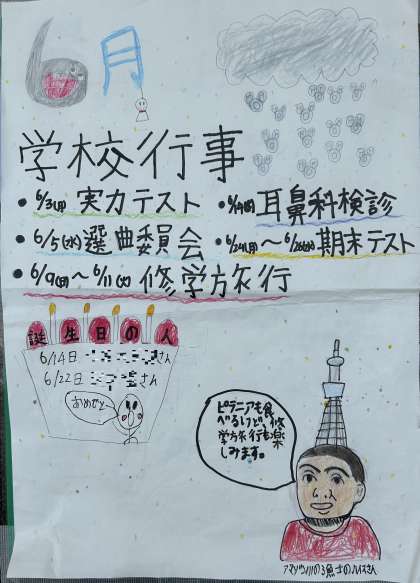 6月
学校行事
・6/3(月) 実力テスト
・6/5(水) 選曲委員会
・6/9(日)〜6/11(火) 修学旅行
耳鼻科検診
・6/24(月)〜6/26(水) 期末テスト
誕生日の人
6/14日
さん
6/22日
さん
おめでと
ピラニアも食
べるけど、修
学方旅行も楽
しみます。